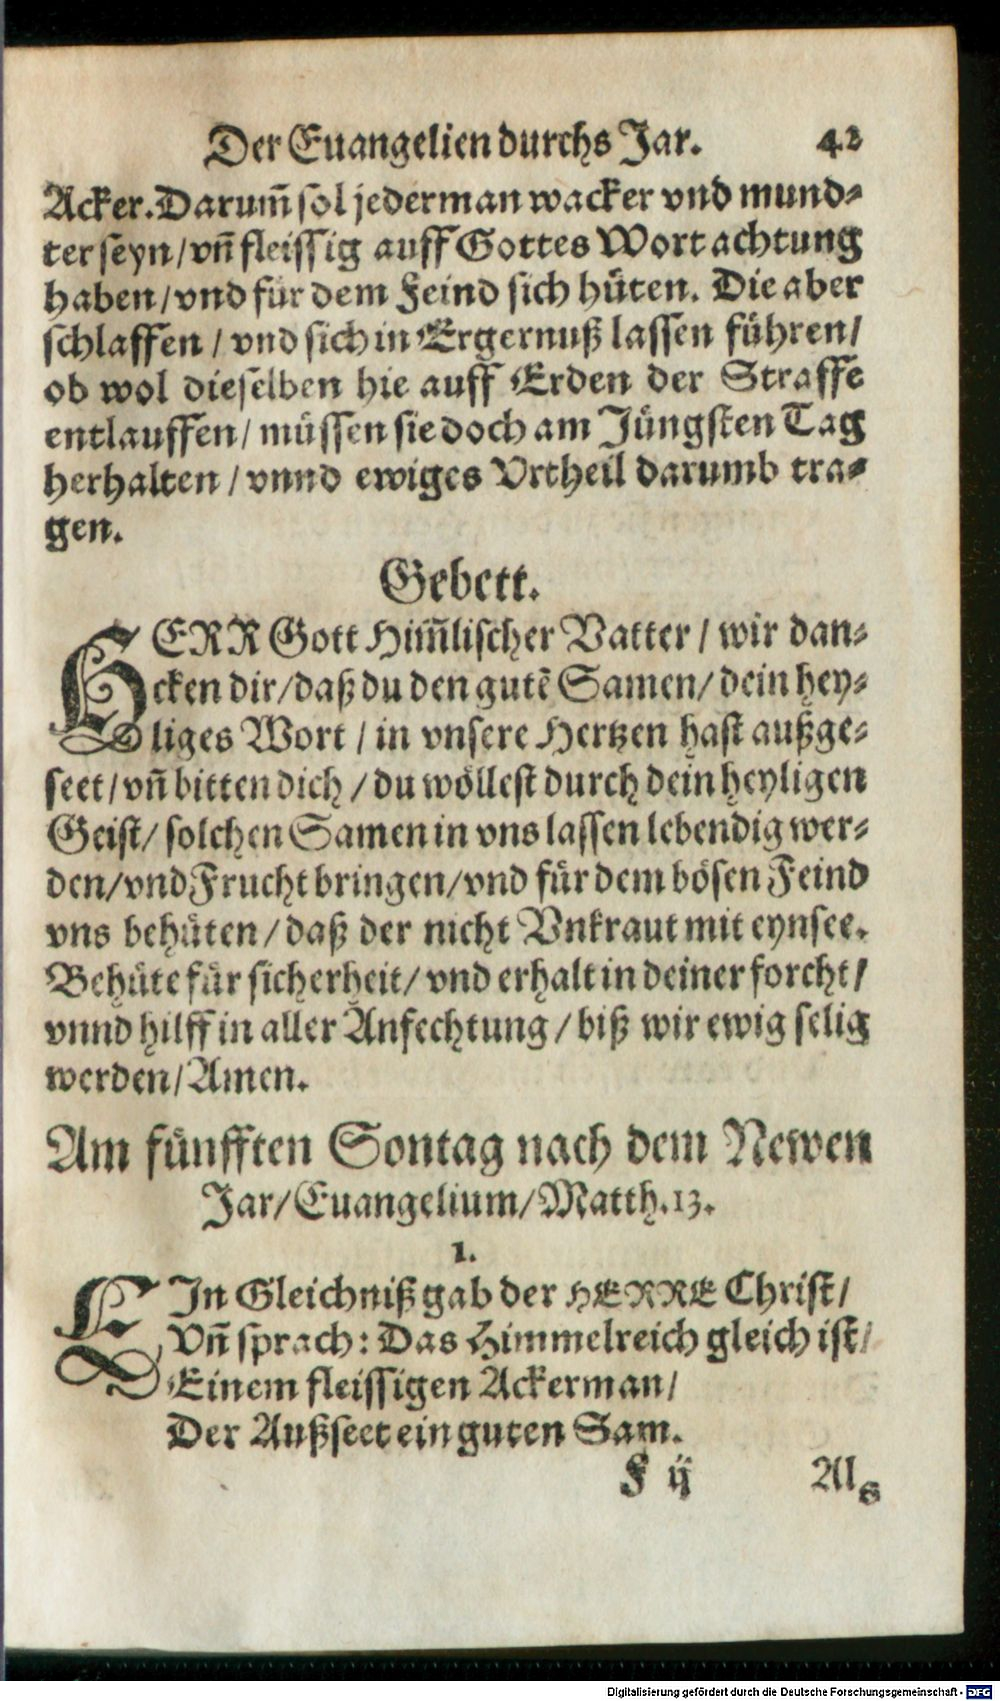 Der Euangelien durchs Jar. 42
Acker. Darum̃ sol jederman wacker vnd mund-
ter seyn / vñ fleissig auff Gottes Wort achtung
haben / vnd für dem Feind sich hüten. Die aber
schlaffen / vnd sich in Ergernuß lassen führen /
ob wol dieselben hie auff Erden der Straffe
entlauffen / müssen sie doch am Jüngsten Tag
herhalten / vnnd ewiges Vrtheil darumb tra-
gen.
Gebett.
HERR Gott Him̃lischer Vatter / wir dan-
cken dir / daß du den gutẽ Samen / dein hey-
liges Wort / in vnsere Hertzen hast außge-
seet / vñ bitten dich / du wöllest durch dein heyligen
Geist / solchen Samen in vns lassen lebendig wer-
den / vnd Frucht bringen / vnd für dem bösen Feind
vns behüten / daß der nicht Vnkraut mit eynsee.
Behüte für sicherheit / vnd erhalt in deiner forcht /
vnnd hilff in aller Anfechtung / biß wir ewig selig
werden / Amen.
Am fünfften Sontag nach dem Newen
Jar / Euangelium / Matth. 13.
1.
EIn Gleichniß gab der HERRE Christ /
Vñ sprach: Das Himmelreich gleich ist /
Einem fleissigen Ackerman /
Der Außseet ein guten Sam.
F ij Als
Digitalisierung gefördert durch die Deutsche Forschungsgemeinschaft - DFG